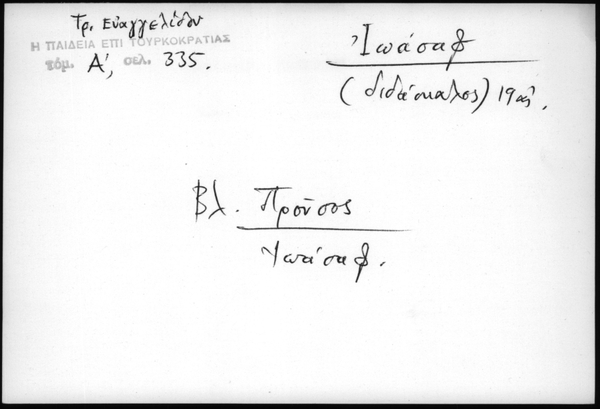 Τρ. Εὐαγγελίδου
Η ΠΑΙΔΕΙΑ ΕΠΙ ΤΟΥΡΚΟΚΡΑΤΙΑΣ
τόμ. Α', σελ. 335.
Ἰωάσαφ
(διδάσκαλος) 19ος αἰ.
Βλ. Προῦσος
Ἰωάσαφ.